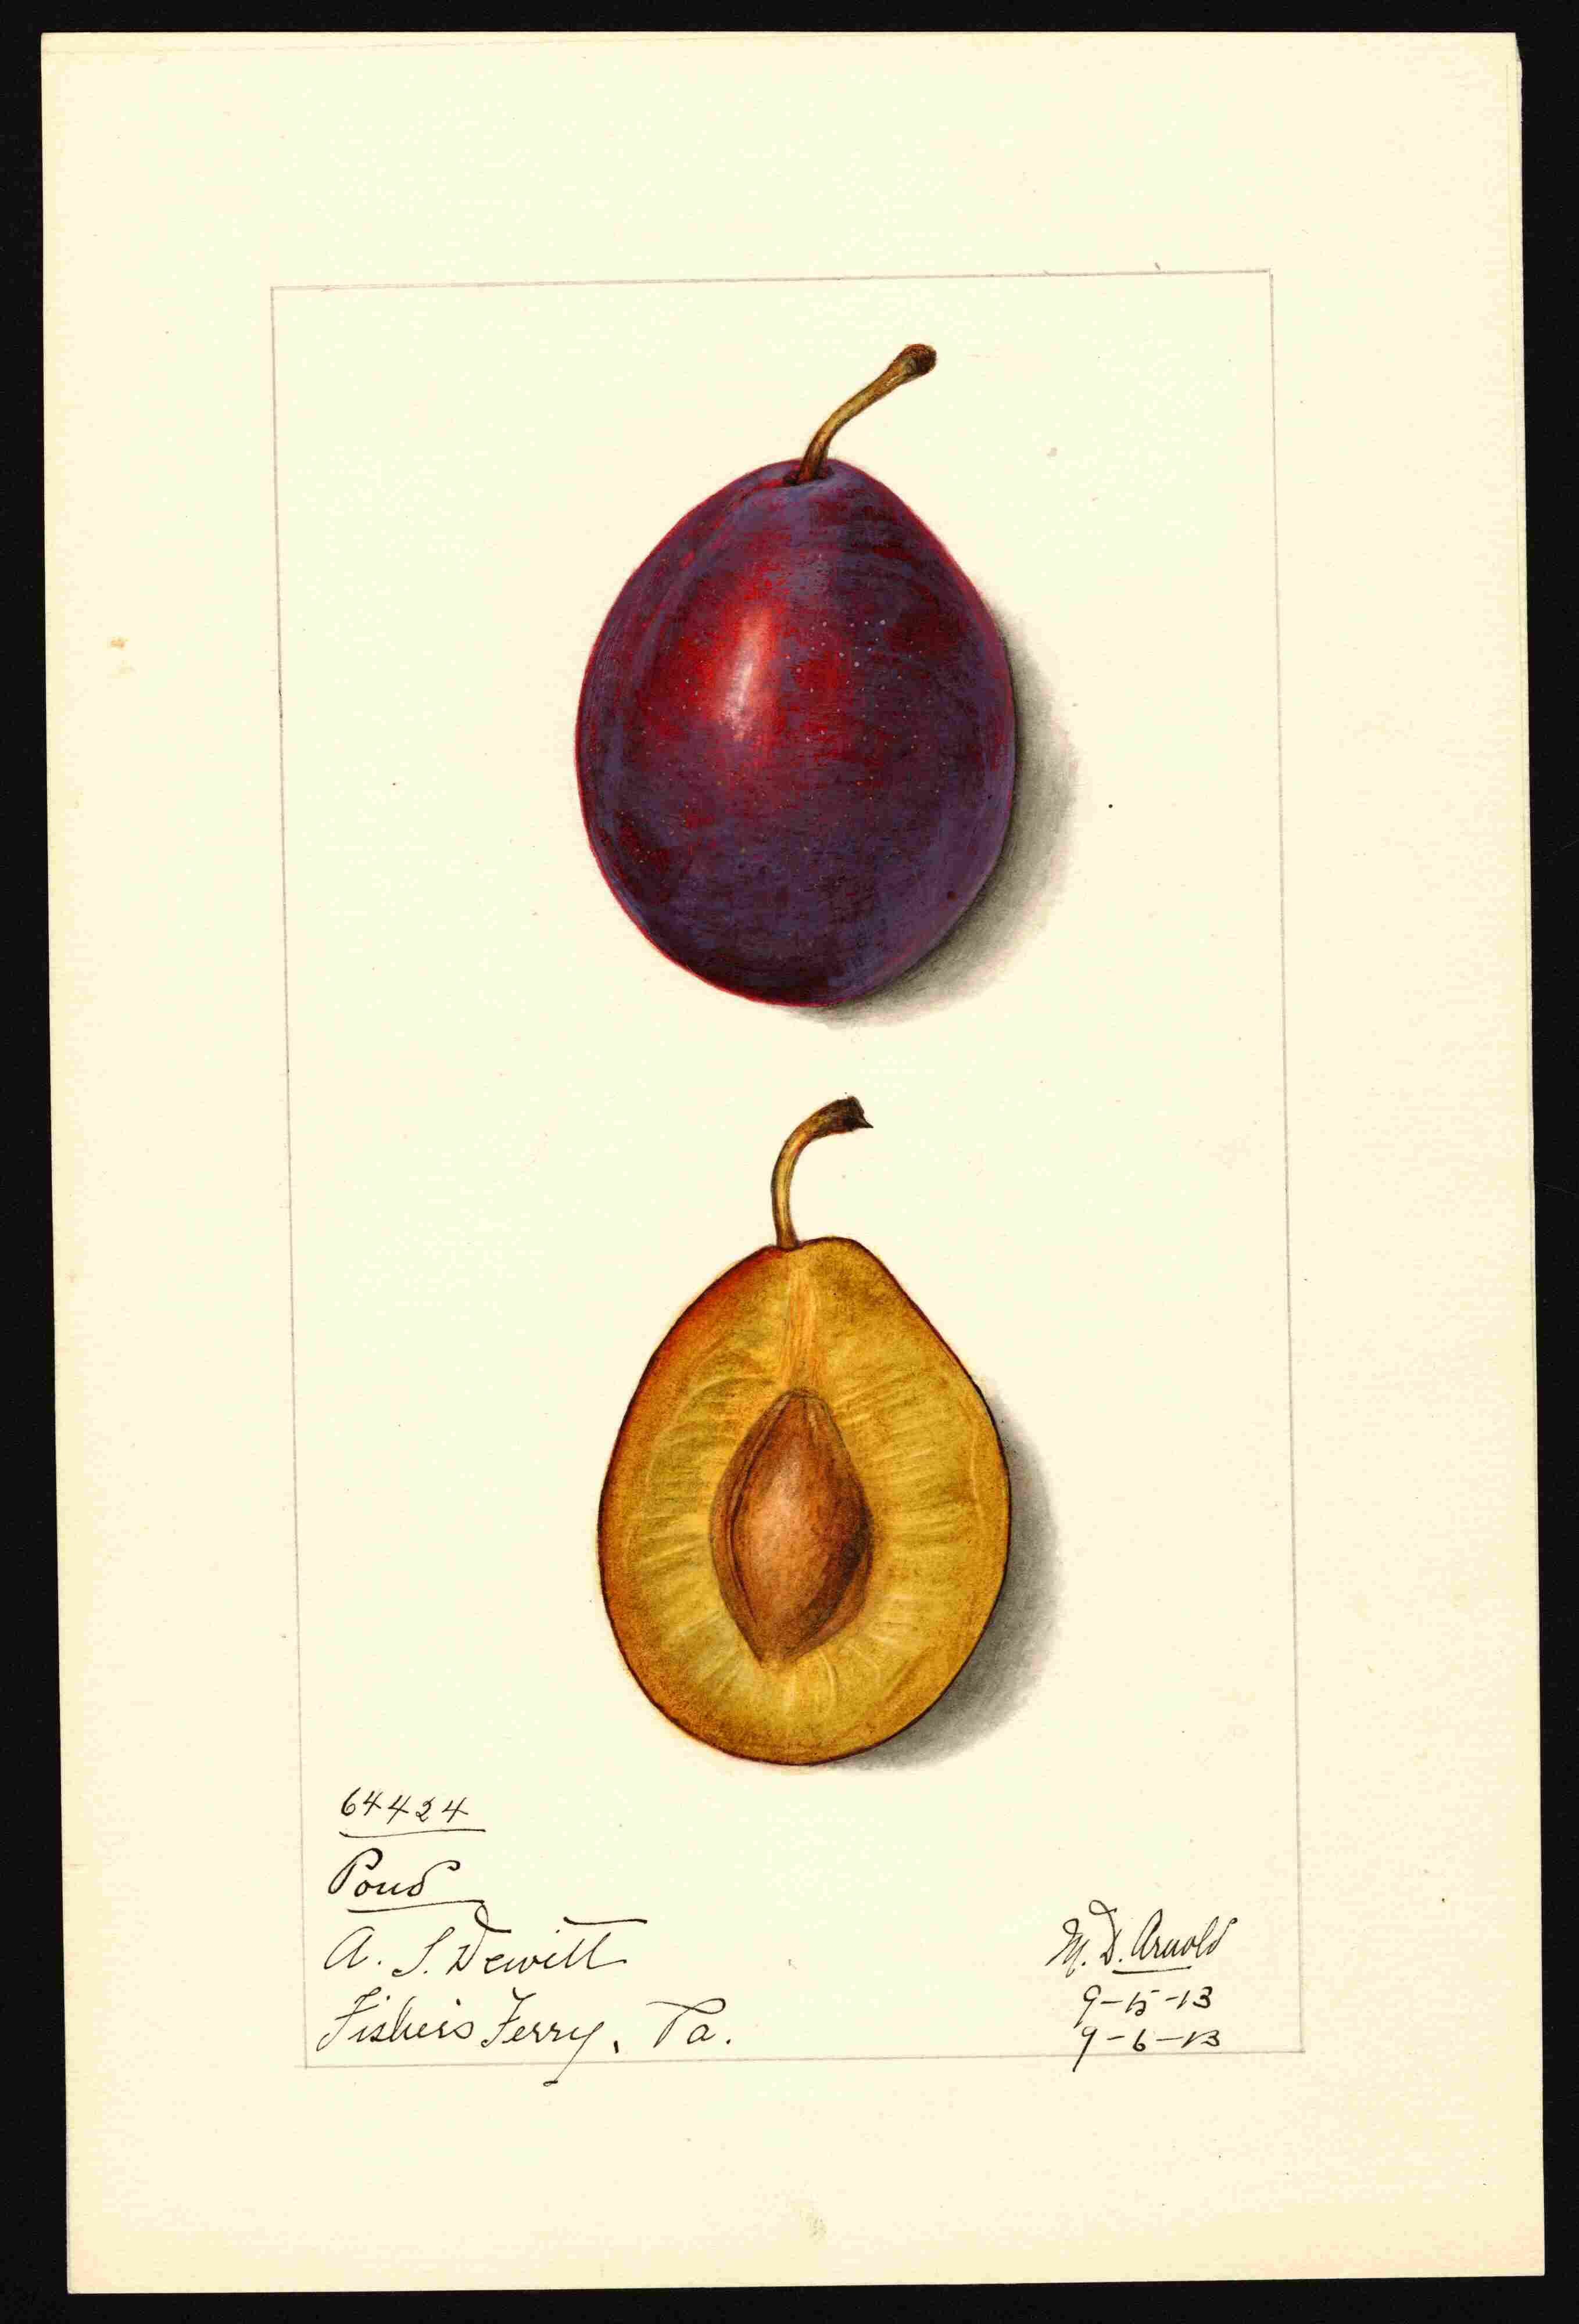 64424
Pond
A. S. Dewitt
Fishers Ferry, Pa.
M. D. Arnold
9-15-13
9-6-13